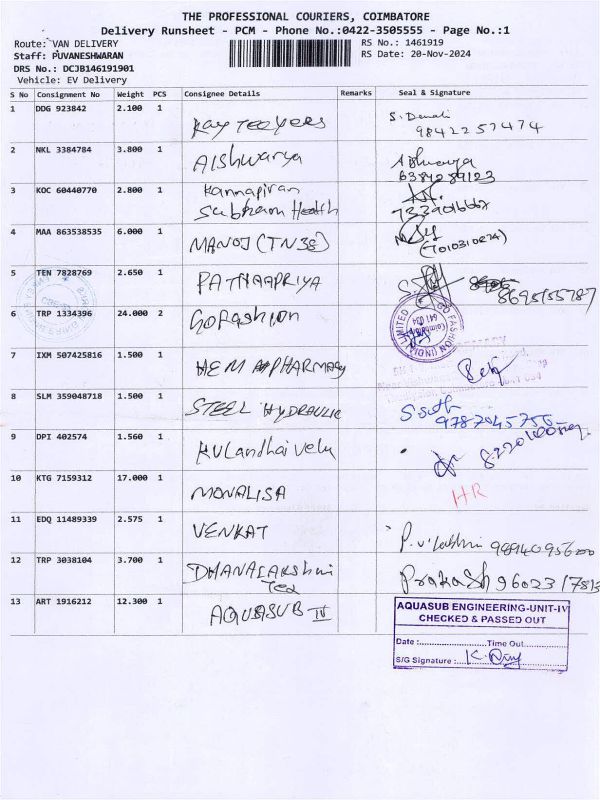 THE PROFESSIONAL COURIERS, COIMBATORE
Delivery Runsheet - PCM - Phone No.:0422-3505555 - Page No.:1
Route: VAN DELIVERY
RS No.: 1461919
Staff: PUVANESHWARAN
RS Date: 20-Nov-2024
DRS No.: DCJB146191901
Vehicle: EV Delivery
S No Consignment No Weight PCS Consignee Details Remarks Seal & Signature
1 DDG 923842 2.100 1 Kay Tee Yees S. Devaki
9842257474
2 NKL 3384784 3.800 1 Aishwarya Aishwarya
6384289123
3 KOC 60440770 2.800 1 Kannapiran
Subham Health
4 MAA 863538535 6.000 1 MANOJ (TN38)
(7010310274)
5 TEN 7828769 2.650 1 PATHAAPRIYA
8695155787
6 TRP 1334396 24.000 2 Go Fashion GO FASHION (INDIA) LIMITED
Coimbatore
641 034
7 IXM 507425816 1.500 1 HEM PHARMACY
8 SLM 359048718 1.500 1 STEEL HYDRAULIC
9 DPI 402574 1.560 1 Kulandhai velu
10 KTG 7159312 17.000 1 MONALISA HR
11 EDQ 11489339 2.575 1 VENKAT
12 TRP 3038104 3.700 1 DHANALAKSHMI
Tex
Prakash
13 ART 1916212 12.300 1 AQUASUB IV
AQUASUB ENGINEERING-UNIT-IV
CHECKED & PASSED OUT
Date : Time Out
S/G Signature :